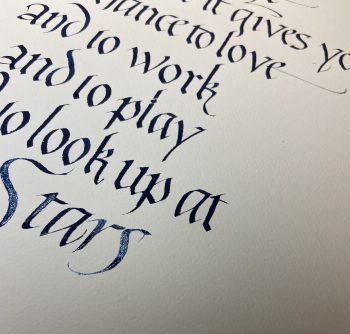 it gives yo
chance to love
and to work
and to play
to look up at
Stars